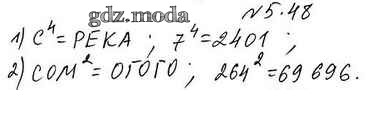 gdz.moda
№5.48
1) C⁴=РЕКА; 7⁴=2401;
2) СОМ²=ОГОГО; 264²=69 696.